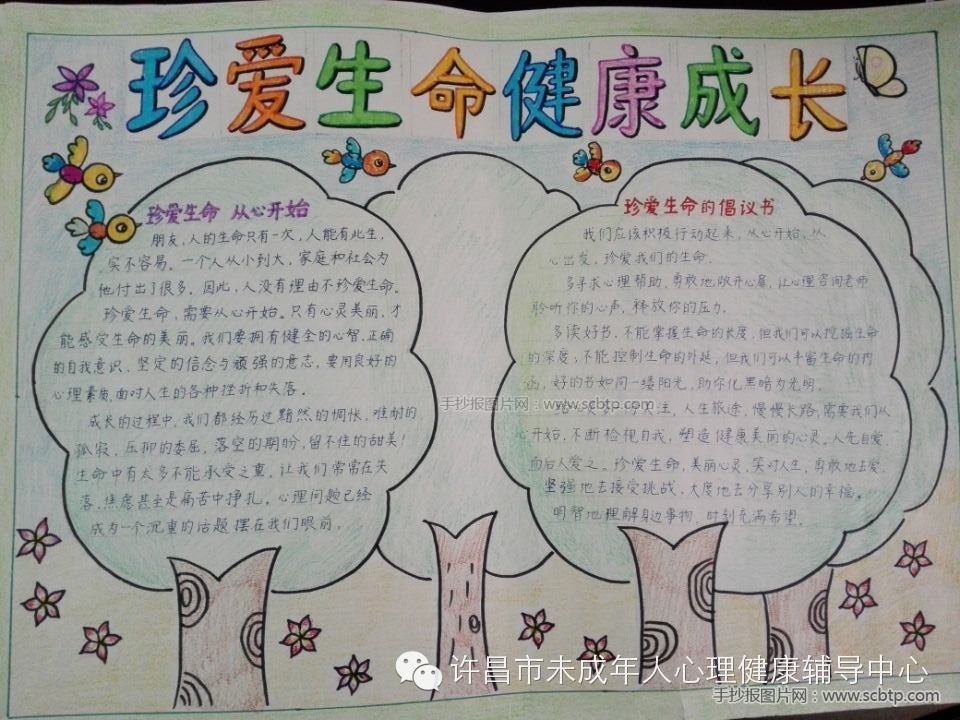 珍爱生命健康成长
珍爱生命 从心开始
朋友,人的生命只有一次,人能有此生,
实不容易。一个人从小到大,家庭和社会为
他付出了很多。因此,人没有理由不珍爱生命。
珍爱生命,需要从心开始。只有心灵美丽,才
能感受生命的美丽。我们要拥有健全的心智,正确
的自我意识、坚定的信念与顽强的意志,要用良好的
心理素质,面对人生的各种挫折和失落。
成长的过程中,我们都经历过黯然的惆怅、难耐的
孤寂、压抑的委屈、落空的期盼,留不住的甜美!
生命中有太多不能承受之重,让我们常常在失
落、焦虑甚至是痛苦中挣扎。心理问题已经
成为一个沉重的话题摆在我们眼前。
珍爱生命的倡议书
我们应该积极行动起来,从心开始,从
心出发,珍爱我们的生命.
多寻求心理帮助,勇敢地敞开心扉,让心理咨询老师
聆听你的心声,释放你的压力.
多读好书,不能掌握生命的长度,但我们可以挖掘生命
的深度;不能控制生命的外延,但我们可以丰富生命的内
涵,好的书如同一缕阳光,助你化黑暗为光明.
关注,人生旅途,慢慢长路,需要我们从
心开始,不断检视自我,塑造健康美丽的心灵,人先自爱
而后人爱之。珍爱生命,美丽心灵,笑对人生,勇敢地去爱,
坚强地去接受挑战,大度地去分享别人的幸福。
明智地理解身边事物,时刻充满希望.
手抄报图片网:www.scbtp.com
许昌市未成年人心理健康辅导中心
手抄报图片网:www.scbtp.com